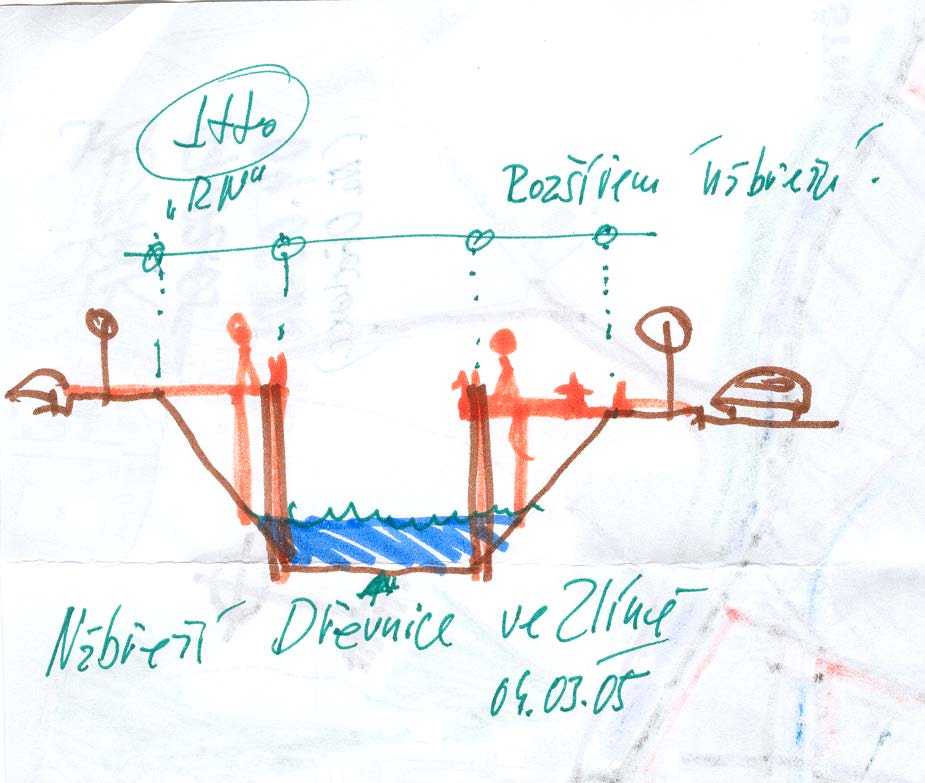 „RN“
Rozšíření nábřeží.
Nábřeží Dřevnice ve Zlíně
04.03.05